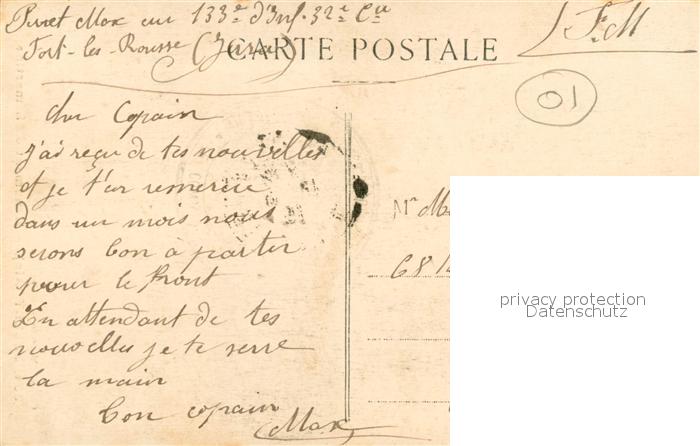 Perret Max au 133e d'Inf. 32e Cie
Fort-les-Rousse (Jura)
F. M
CARTE POSTALE
01
cher Copain
j'ai reçu de tes nouvelles
et je t'en remercie
dans un mois nous
serons bon à partir
pour le Front
En attendant de tes
nouvelles je te serre
la main
bon copain
Max
Mr
68
privacy protection
Datenschutz